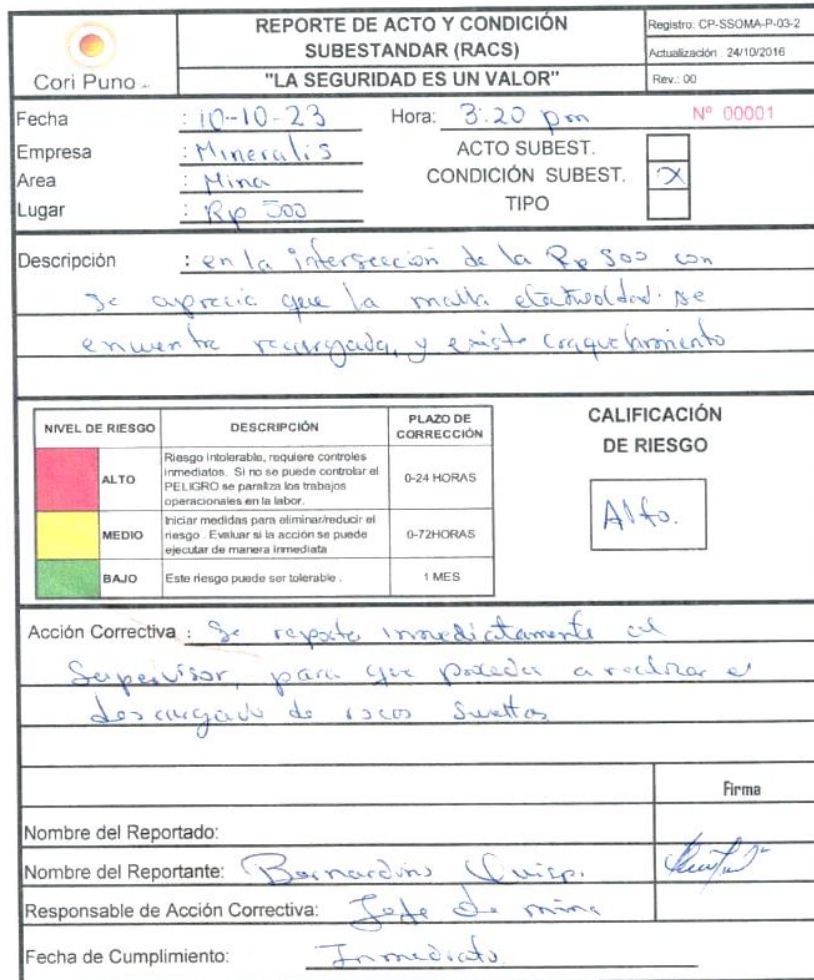 Cori Puno
REPORTE DE ACTO Y CONDICIÓN
SUBESTANDAR (RACS)
"LA SEGURIDAD ES UN VALOR"
Registro: CP-SSOMA-P-03-2
Actualización 24/10/2016
Rev.: 00
Fecha : 10-10-23 Hora: 3:20 pm Nº 00001
Empresa : Mineralis ACTO SUBEST.
Area : Mina CONDICIÓN SUBEST. X
Lugar : Rp 500 TIPO
Descripción : en la intersección de la Rp 500 con
se aprecia que la malla electrosoldad. se
encuentra recargada, y existe craquelamiento
NIVEL DE RIESGO DESCRIPCIÓN PLAZO DE CORRECCIÓN
ALTO Riesgo intolerable, requiere controles
inmediatos. Si no se puede controlar el
PELIGRO se paraliza los trabajos
operacionales en la labor. 0-24 HORAS
MEDIO Iniciar medidas para eliminar/reducir el
riesgo . Evaluar si la acción se puede
ejecutar de manera inmediata 0-72HORAS
BAJO Este riesgo puede ser tolerable . 1 MES
CALIFICACIÓN
DE RIESGO
Alto.
Acción Correctiva : Se reporta inmediatamente al
Supervisor, para que proceda a realizar el
descargado de rocas Sueltas
Firma
Nombre del Reportado:
Nombre del Reportante: Bernardino Quisp.
Responsable de Acción Correctiva: Jefe de mina
Fecha de Cumplimiento: Inmediato.